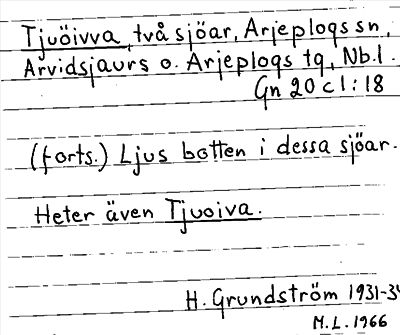 Tjuöivva, två sjöar, Arjeplogs sn,
Arvidsjaurs o. Arjeplogs tg, Nb.l.
Gn 20 c 1:18
(forts.) Ljus botten i dessa sjöar.
Heter även Tjuoiva.
H. Grundström 1931-34
M.L. 1966